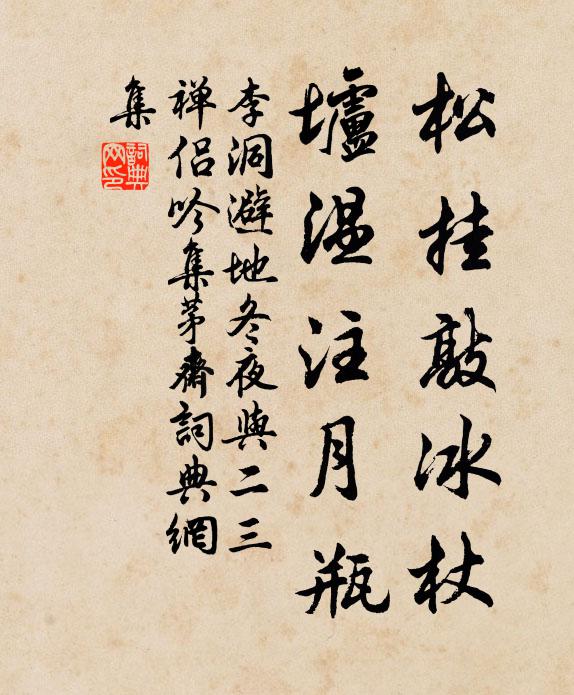 松挂敲冰杖
壚温注月瓶
李洞避地冬夜與二三
禅侣吟集茅齋詞典網
集
詞典網印